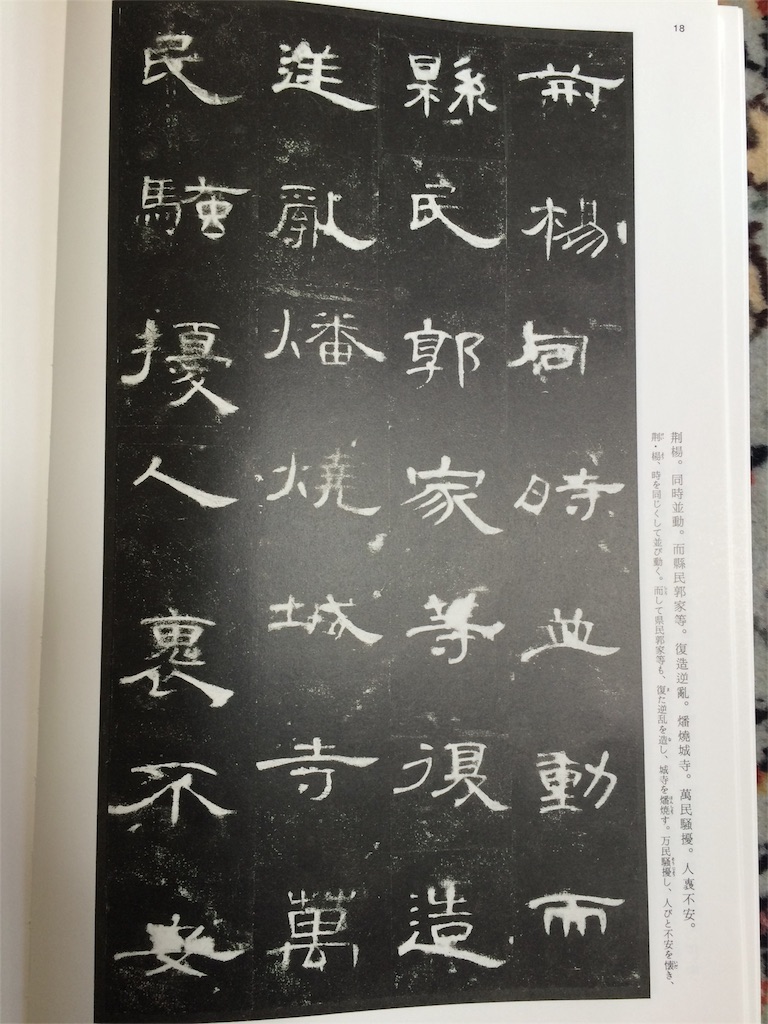 18
荆楊。同時並動。而縣民郭家等。復造逆亂。燔燒城寺。萬民騷擾。人褢不安。
荆・楊、時を同じくして並び動く。而して県民郭家等も、復た逆乱を造し、城寺を燔焼す。万民騒擾し、人びと不安を懐き、
荆楊同時並動而
縣民郭家等復造
逆亂燔燒城寺萬
民騷擾人褢不安